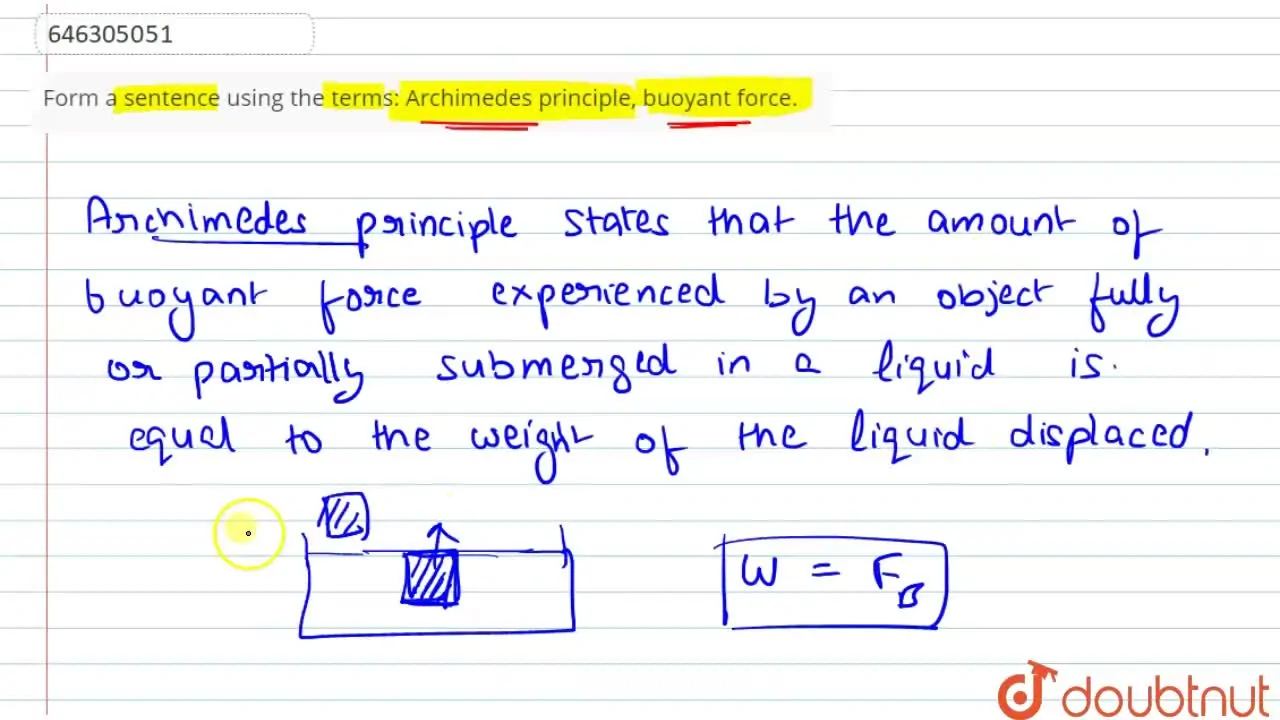 646305051
Form a sentence using the terms: Archimedes principle, buoyant force.
Archimedes principle states that the amount of
buoyant force experienced by an object fully
or partially submerged in a liquid is
equal to the weight of the liquid displaced.
W = F_B
doubtnut